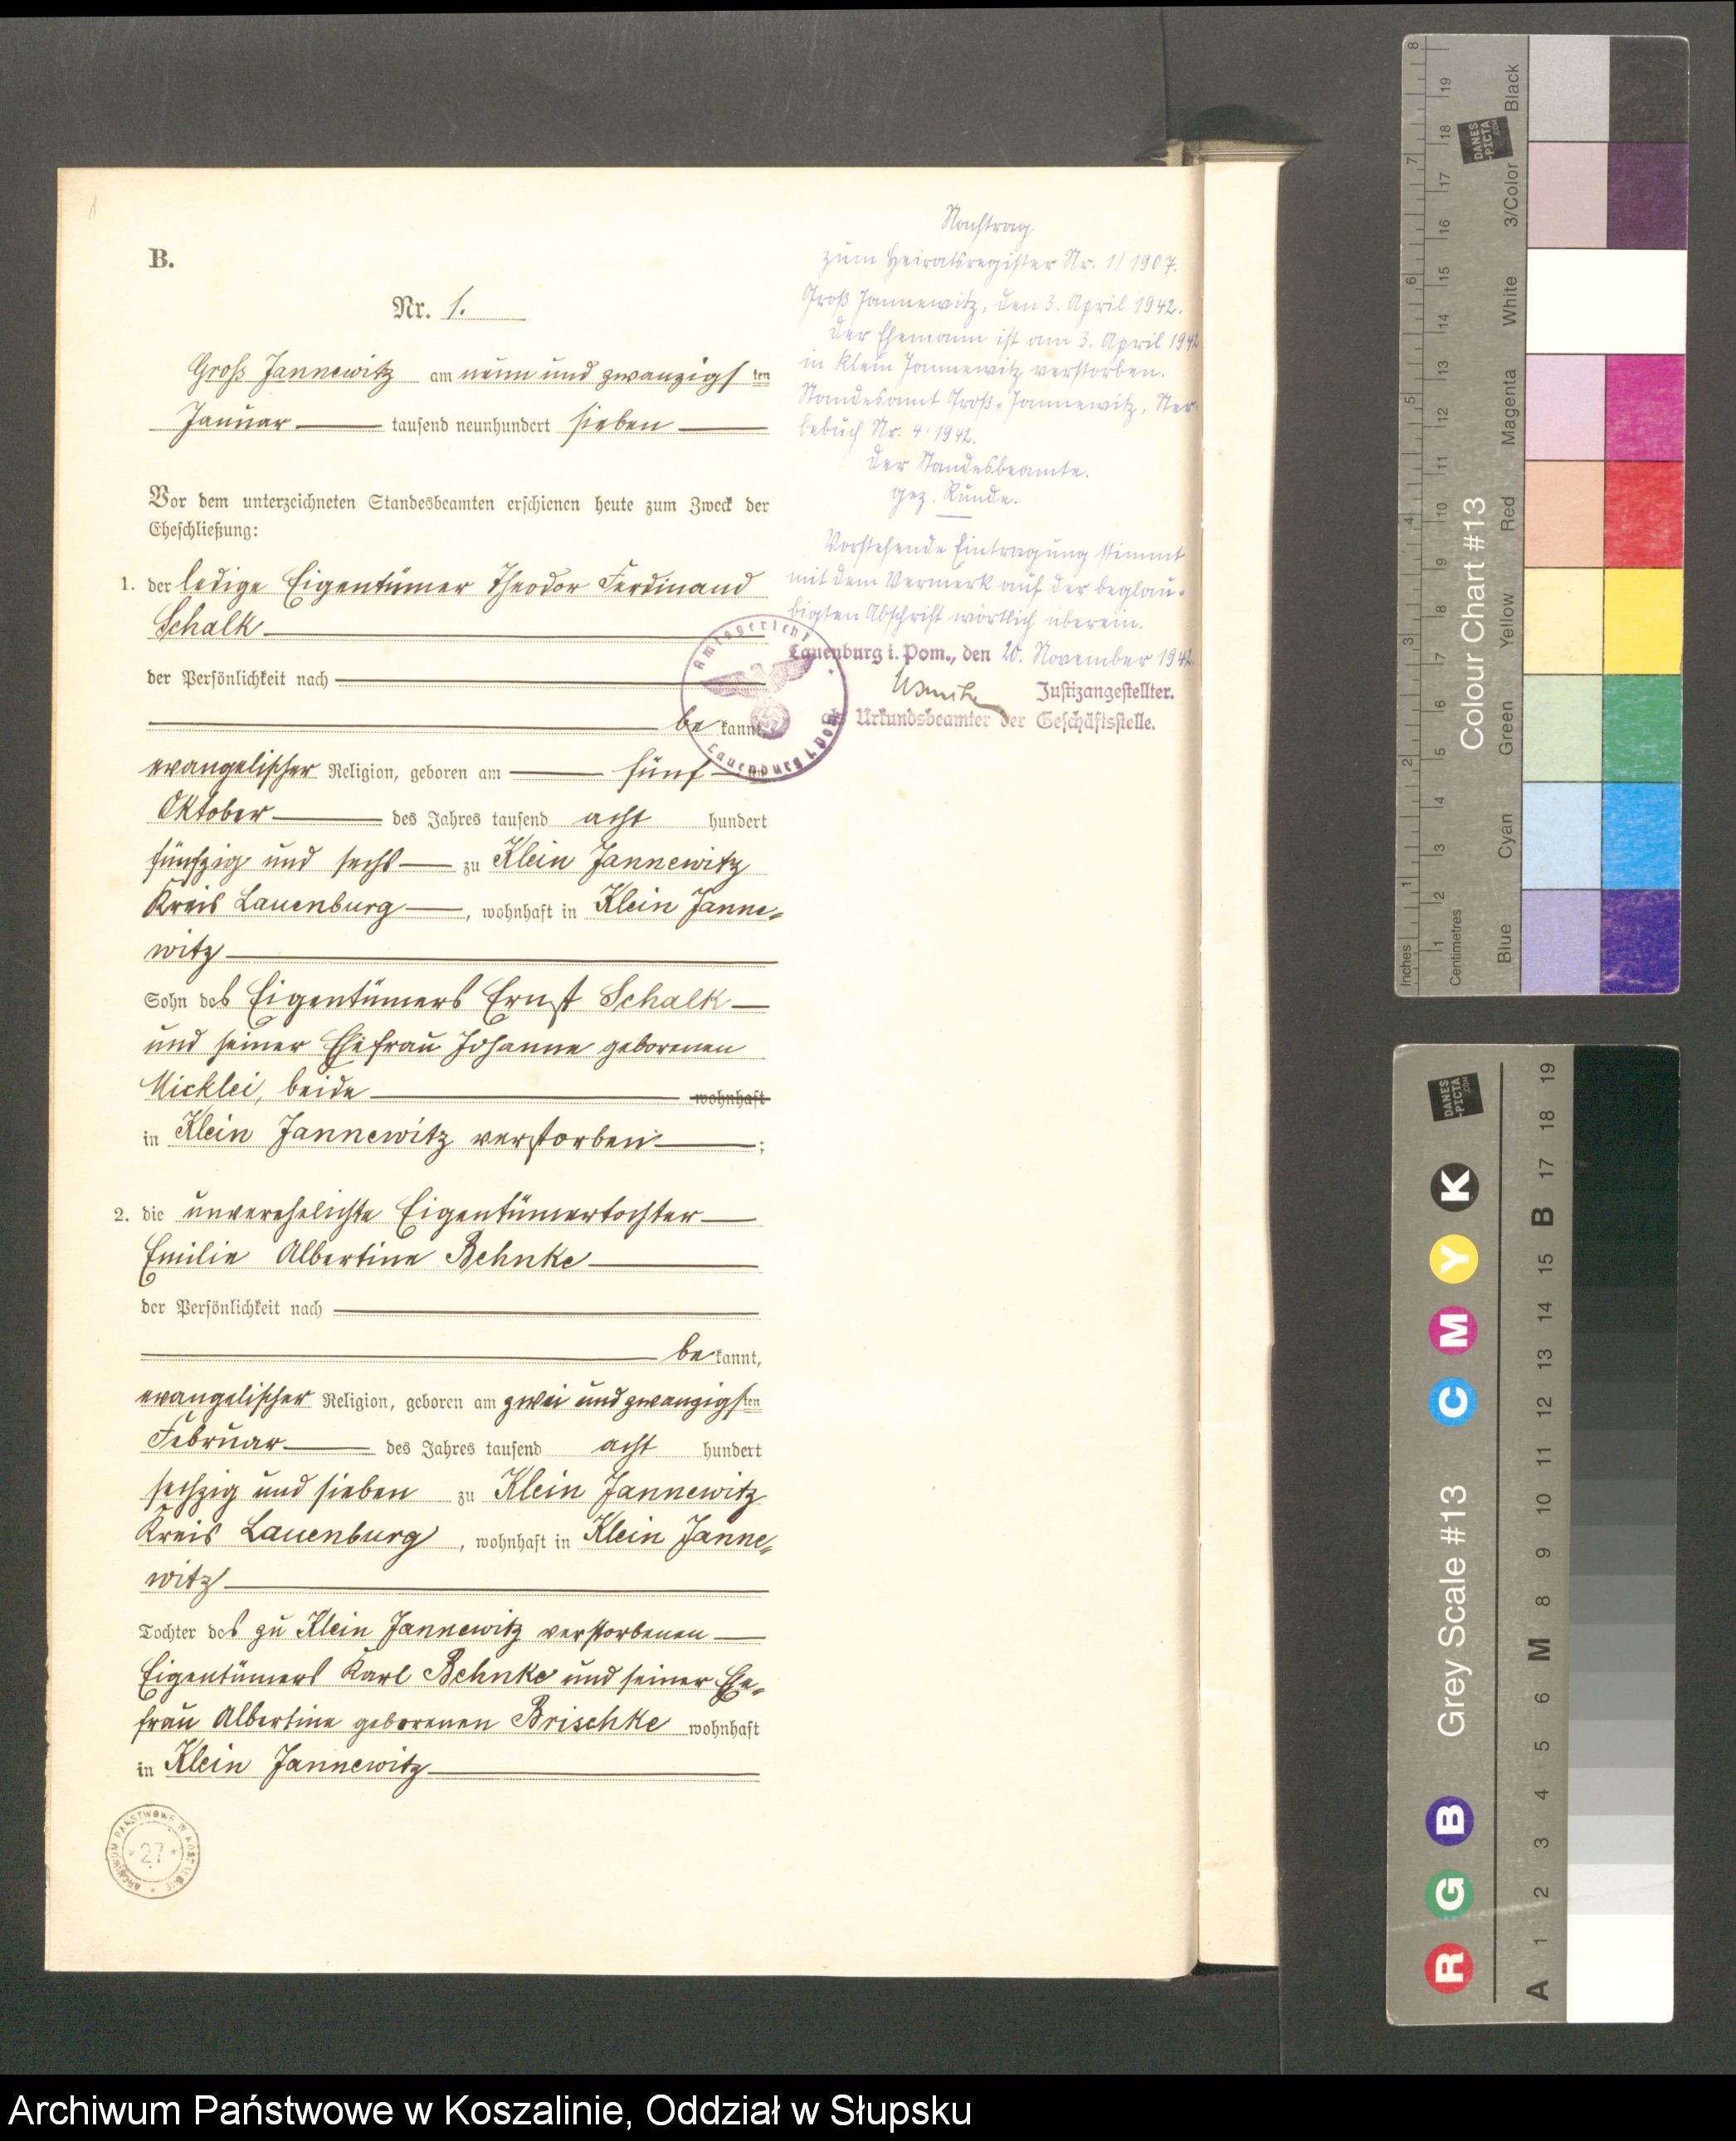 1
B.
Nr. 1.
Groß Jannewitz am neun und zwanzigsten
Januar tausend neunhundert sieben
Vor dem unterzeichneten Standesbeamten erschienen heute zum Zweck der
Eheschließung:
1. der ledige Eigentümer Theodor Ferdinand
Schalk
der Persönlichkeit nach
be kannt,
evangelischer Religion, geboren am fünf
Oktober des Jahres tausend acht hundert
fünfzig und sechs zu Klein Jannewitz
Kreis Lauenburg, wohnhaft in Klein Janne-
witz
Sohn des Eigentümers Ernst Schalk
und seiner Ehefrau Johanne geborenen
Micklei, beide wohnhaft
in Klein Jannewitz verstorben;
2. die unverehelichte Eigentümertochter
Emilie Albertine Behnke
der Persönlichkeit nach
be kannt,
evangelischer Religion, geboren am zwei und zwanzigsten
Februar des Jahres tausend acht hundert
sechzig und sieben zu Klein Jannewitz
Kreis Lauenburg, wohnhaft in Klein Janne-
witz
Tochter des zu Klein Jannewitz verstorbenen
Eigentümers Karl Behnke und seiner Ehe-
frau Albertine geborenen Brischke wohnhaft
in Klein Jannewitz
Nachtrag
zum Heiratsregister Nr. 1/1907.
Groß Jannewitz, den 3. April 1942.
Der Ehemann ist am 3. April 1942
in Klein Jannewitz verstorben.
Standesamt Groß-Jannewitz, Ster-
bebuch Nr. 4/1942.
Der Standesbeamte.
gez. Runde.
Vorstehende Eintragung stimmt
mit dem Vermerk auf der beglau-
bigten Abschrift wörtlich überein.
Lauenburg i. Pom., den 20. November 1942.
Justizangestellter.
Urkundsbeamter der Geschäftsstelle.
Amtsgericht
Lauenburg i. Pom.
ARCHIWUM PAŃSTWOWE W KOSZALINIE
* 27 *
Inches 1 2 3 4 5 6 7 8
Centimetres 1 2 3 4 5 6 7 8 9 10 11 12 13 14 15 16 17 18 19
Colour Chart #13
Blue Cyan Green Yellow Red Magenta White 3/Color Black
DANES
-PICTA
.COM
Grey Scale #13
R G B C M Y K
A 1 2 3 4 5 6 M 8 9 10 11 12 13 14 15 B 17 18 19
DANES
-PICTA
.COM
Archiwum Państwowe w Koszalinie, Oddział w Słupsku